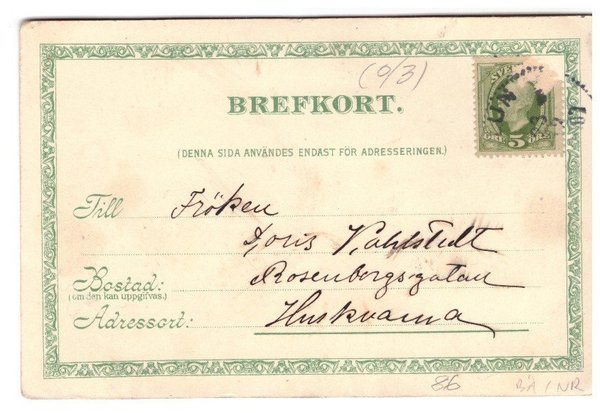 (0/3)
BREFKORT.
(DENNA SIDA ANVÄNDES ENDAST FÖR ADRESSERINGEN.)
SVE
5
Till Fröken
Doris Kahlstedt
Bostad: Rosenborgsgatan
(om den kan uppgifvas.)
Adressort: Huskvarna
86